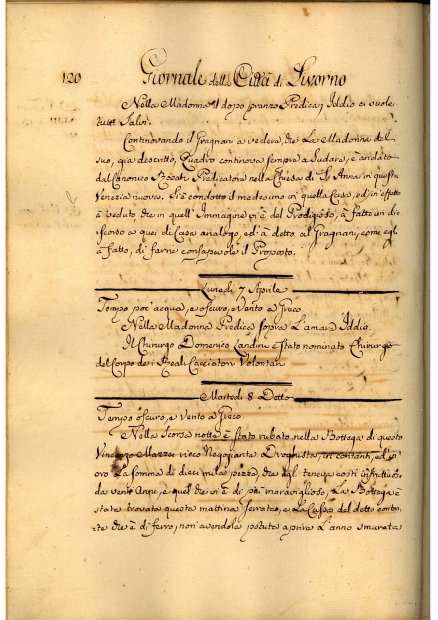 120 Giornale della Città di Livorno
Nella Madonna il dopo pranzo Predica; Iddio ci vuole
tutti Salvi.
Continovando il Fragnani a vedere, che La Madonna del
suo, già descritto, Quadro continova sempre a Sudare, è andato
dal Canonico Predicatore nella Chiesa di S. Anna in questa
Venezia nuova. Si è condotto il medesimo in quella Casa, ed in effetto
à veduto, che in quell'Immagine vi è del Prodigioso, à fatto un di=
scorso a quei di Casa analogo, ed à detto al Fragnani, come egli
à fatto, di farne consapevole il Proposto.
Lunedì 7 Aprile
Tempo por' acqua, e oscuro, e Vento a Greco
Nella Madonna Predica sopra L'amare Iddio.
Il Chirurgo Domenico Landini è Stato nominato Chirurgo
del Corpo dei Reali Cacciatori Volontari
Martedì 8 Detto
Tempo oscuro, e Vento a Greco
Nella Scorsa notte è stato rubato nella Bottega di questo
Vincenzo Mazzei ricco Negoziante Droghista, in contanti, ed in
oro La somma di dieci mila pezze, che egli teneva costì infruttuo=
da venti Anni, e quel che vi è di più maraviglioso, La Bottega è
stata trovata questa mattina serrata, e La Cassa del detto conta=
nte che è di ferro, non avendola potuta aprire L'anno smurata